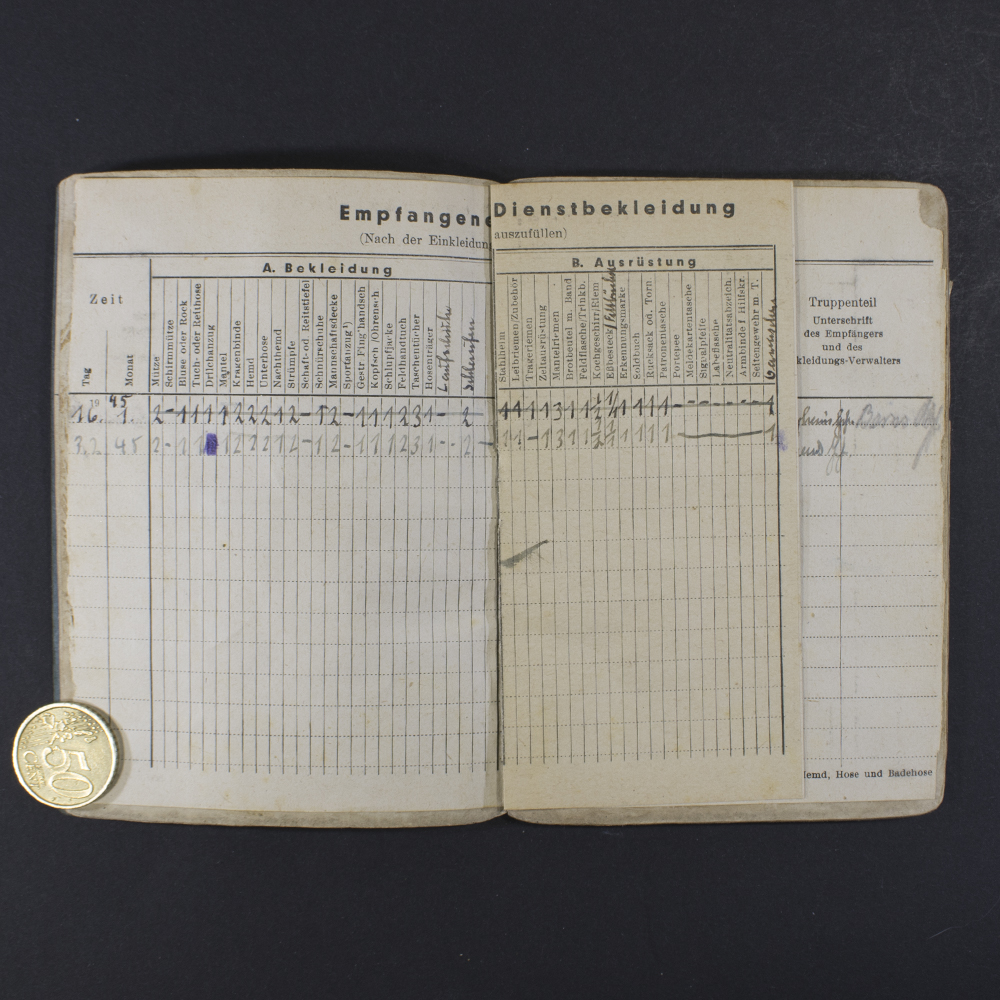 Empfangene Dienstbekleidung
(Nach der Einkleidun auszufüllen)
A. Bekleidung
B. Ausrüstung
Zeit
Tag
Monat
Mütze
Schirmmütze
Bluse oder Rock
Tuch- oder Reithose
Drilchanzug
Mantel
Kragenbinde
Hemd
Unterhose
Nachthemd
Strümpfe
Schaft- od. Reitstiefel
Schnürschuhe
Mannschaftsdecke
Sportanzug¹)
Gestr Fing'handsch
Kopfsch /Ohrensch
Schlupfjacke
Feldhandtuch
Taschentücher
Hosenträger
Laufschuhe
Stahlhelm
Leibriemen/Zubehör
Trageriemen
Zeltausrüstung
Mantelriemen
Brotbeutel m. Band
Feldflasche/Trinkb.
Kochgeschirr/Riem
Eßbesteck/Fettbüchse
Erkennungsmarke
Rucksack od. Torn
Soldbuch
Patronentasche
Portepee
Meldekartentasche
Signalpfeife
Labeflasche
Neutralitätsabzeich.
Armbinde f Hilfskr.
Seitengewehr m T.
Gamaschen
Truppenteil
Unterschrift
des Empfängers
und des
kleidungs-Verwalters
19 45
16. 1. 2 - 1 1 1 1 2 2 2 1 2 - 1 2 - 1 1 1 2 3 1 - 2
3.2. 45 2 - 1 1 1 2 2 2 1 2 - 1 2 - 1 1 1 2 3 1 - - 2
emd, Hose und Badehose
50
CENT